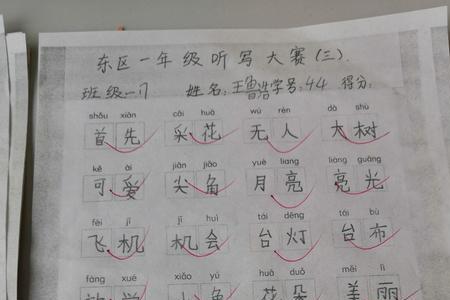 东区一年级听写大赛(三).
班级一7 姓名:王鲁浩学号:44 得分:
shǒu xiān cǎi huā wú rén dà shù
首先 采花 无人 大树
kě ài jiān jiǎo yuè liang liàng guāng
可爱 尖角 月亮 亮光
fēi jī jī huì tái dēng tái bù
飞机 机会 台灯 台布
fàng xué xiǎo yú huā duǒ měi lì
放学 小鱼 花朵 美丽